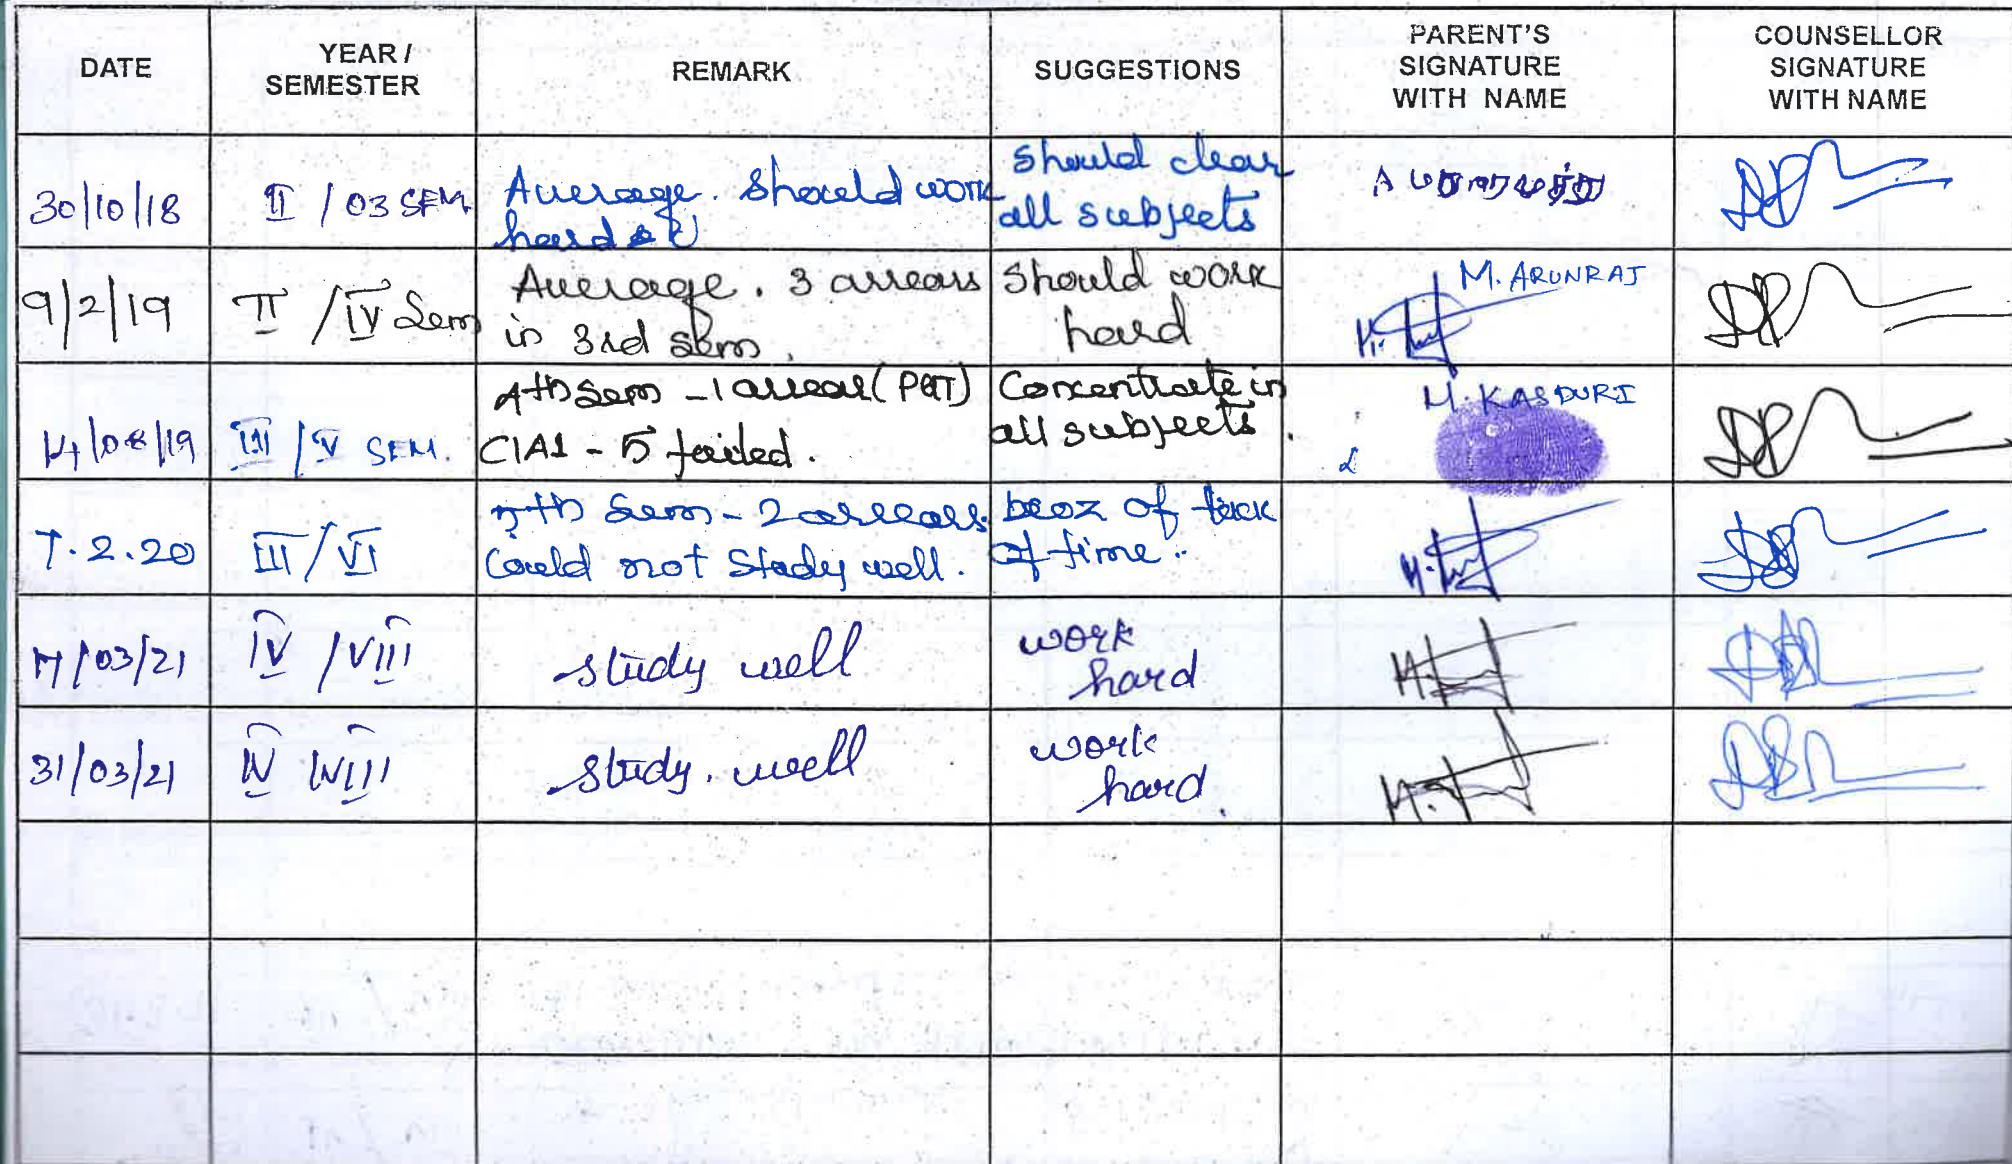 DATE
YEAR /
SEMESTER
REMARK
SUGGESTIONS
PARENT'S
SIGNATURE
WITH NAME
COUNSELLOR
SIGNATURE
WITH NAME
30/10/18
II / 03 SEM
Average. Should work
hard
Should clear
all subjects
A
9/2/19
II / IV Sem
Average. 3 arrears
in 3rd sem.
Should work
hard
M. ARUNRAJ
14/08/19
III / V SEM.
4th Sem - 1 arrear (PQT)
CIA1 - 5 failed.
Concentrate in
all subjects.
M. KASDURI
7.2.20
III / VI
5th Sem - 2 arrears.
Could not Study well.
becoz of lack
of time.
/03/21
IV / VIII
study well
work
hard
31/03/21
IV / VIII
study. well
work
hard.